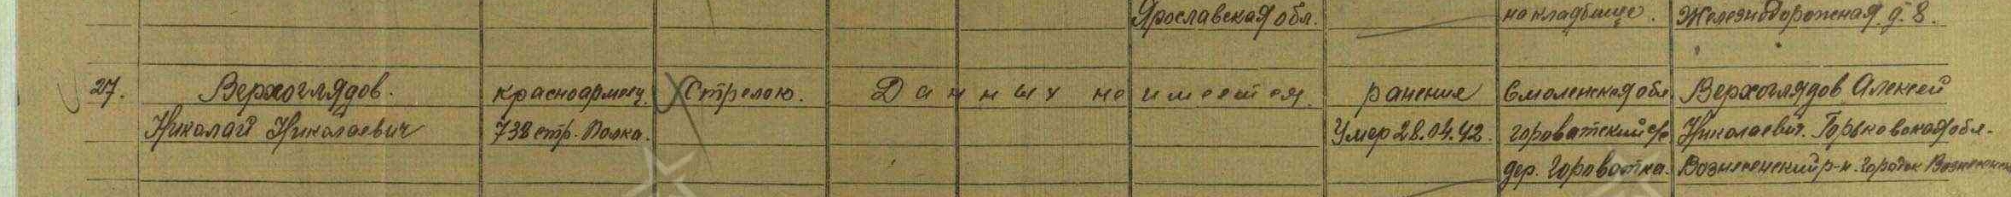 Ярославская обл.
на кладбище.
Железнодорожная д. 8.
27. Верхоглядов. красноармеец. Стрелок. Данных не имеется. ранения Смоленская обл. Верхоглядов Алексей
Николай Николаевич 738 стр. полка. Умер 28.04.42. Николаевич. Горьковская обл.
дер. Вознесенский р-н. городок